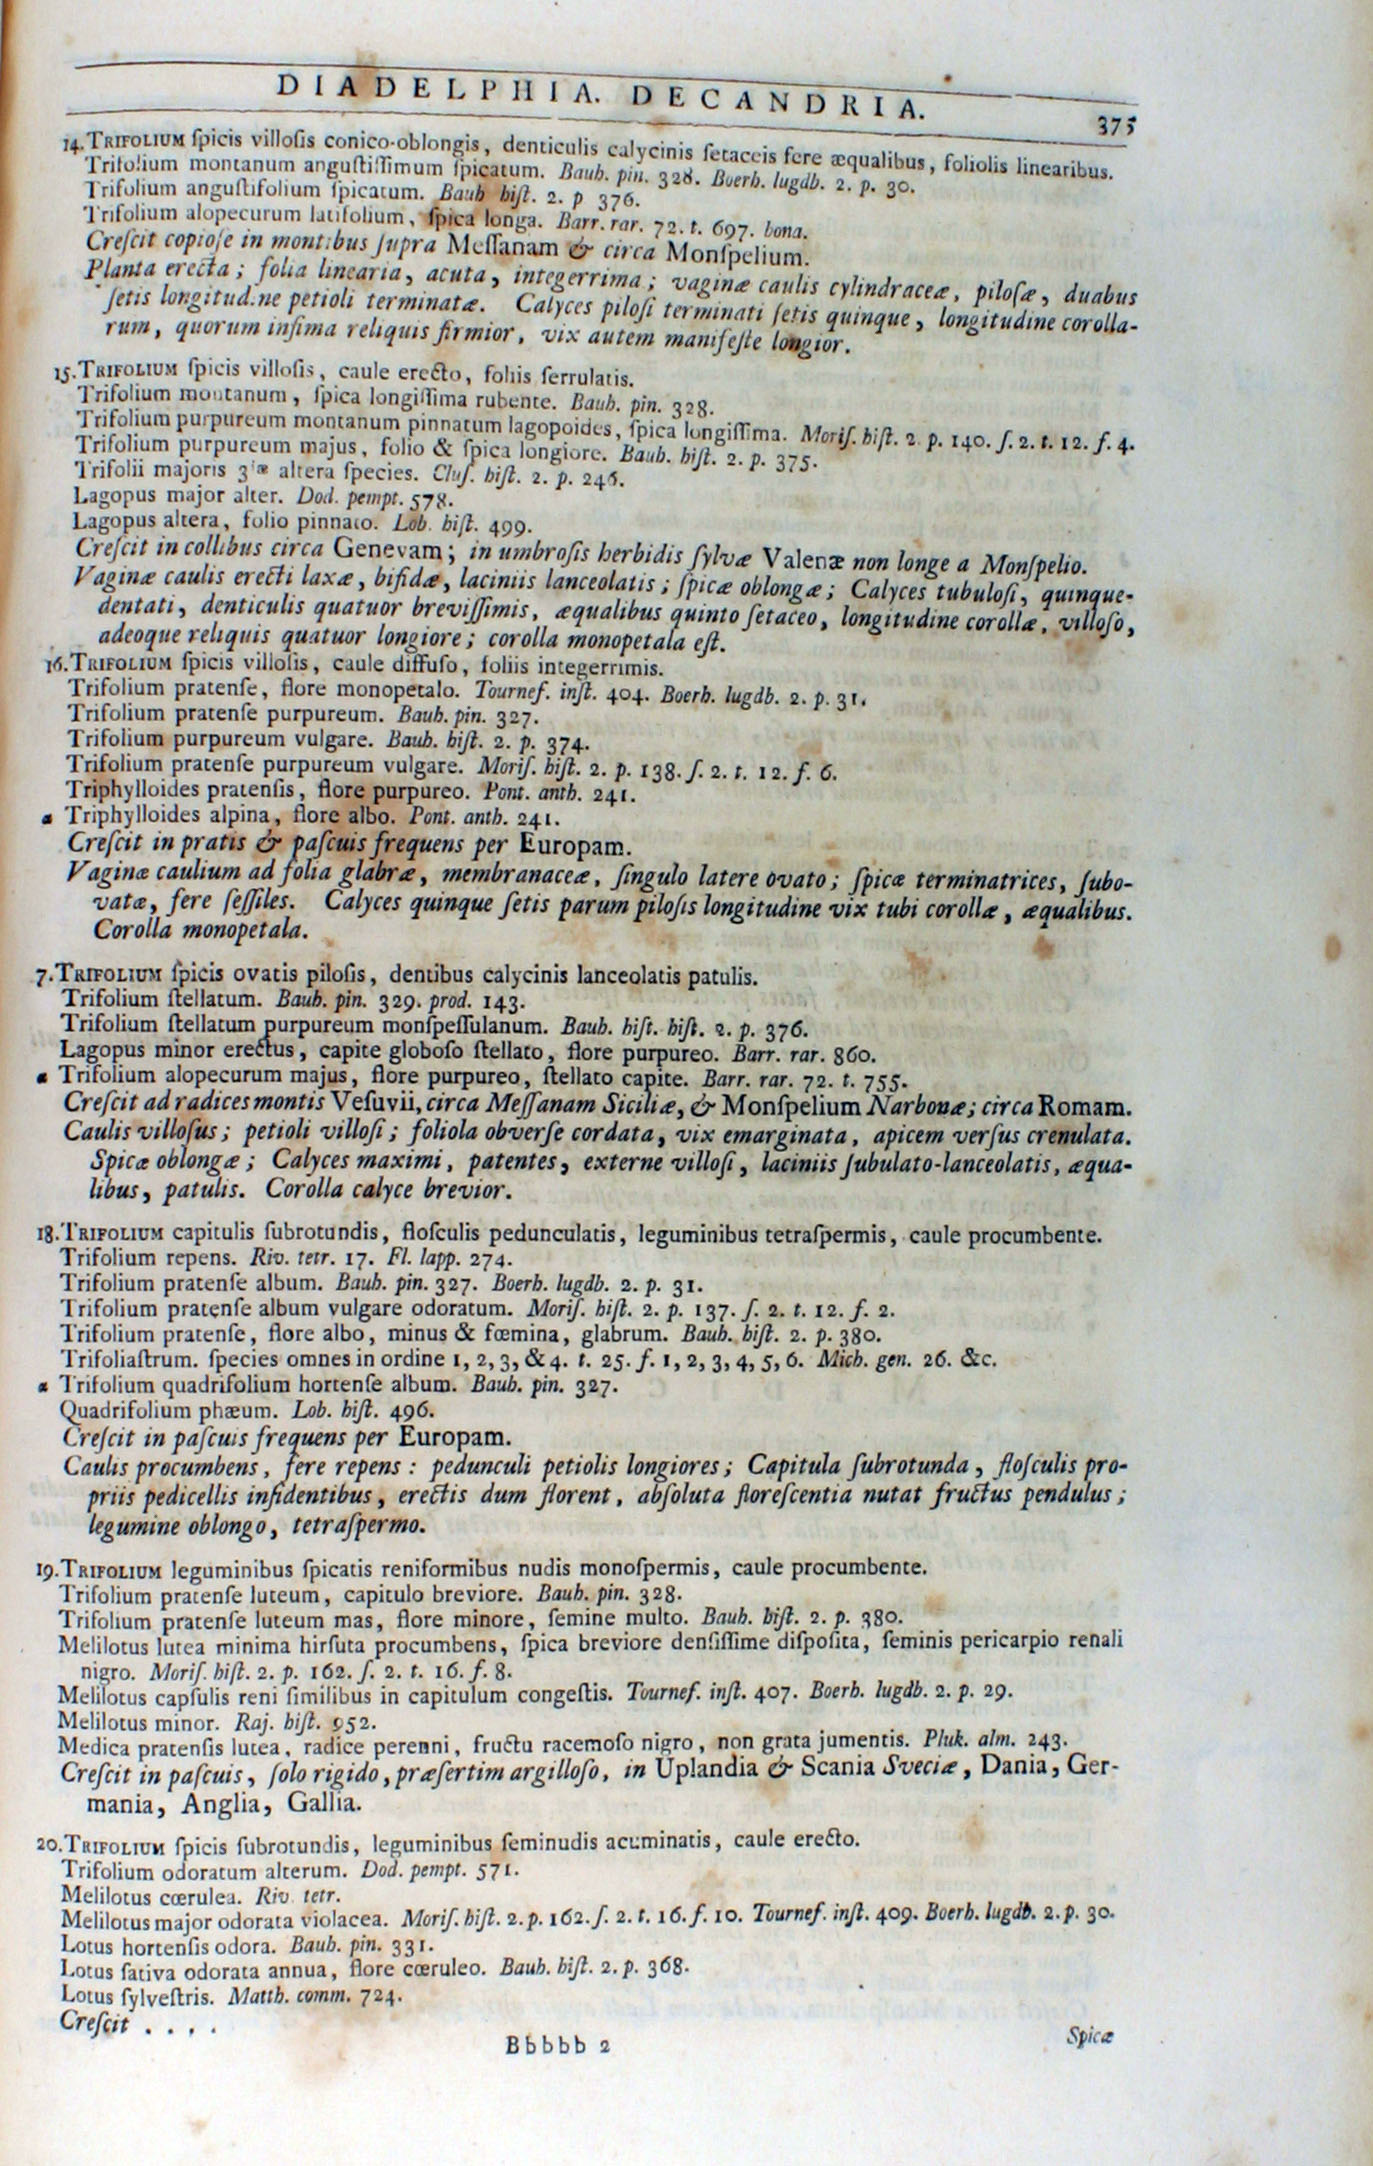 DIADELPHIA. DECANDRIA.
375
14. TRIFOLIUM ſpicis villoſis conico-oblongis, denticulis calycinis ſetaceis fere æqualibus, foliolis linearibus.
Trifolium montanum anguſtiſſimum ſpicatum. Bauh. pin. 328. Boerh. lugdb. 2. p. 30.
Trifolium anguſtifolium ſpicatum. Bauh hiſt. 2. p 376.
Trifolium alopecurum latifolium, ſpica longa. Barr. rar. 72. t. 697. bona.
Creſcit copioſe in montibus ſupra Meſſanam & circa Monſpelium.
Planta erecta; folia linearia, acuta, integerrima; vaginæ caulis cylindraceæ, piloſæ, duabus
ſetis longitudine petioli terminatæ. Calyces piloſi terminati ſetis quinque, longitudine corolla-
rum, quorum infima reliquis firmior, vix autem manifeſte longior.
15. TRIFOLIUM ſpicis villoſis, caule erecto, foliis ſerrulatis.
Trifolium montanum, ſpica longiſſima rubente. Bauh. pin. 328.
Trifolium purpureum montanum pinnatum lagopoides, ſpica longiſſima. Moriſ. hiſt. 2. p. 140. ſ. 2. t. 12. f. 4.
Trifolium purpureum majus, folio & ſpica longiore. Bauh. hiſt. 2. p. 375.
Trifolii majoris 3iæ altera ſpecies. Cluſ. hiſt. 2. p. 246.
Lagopus major alter. Dod. pempt. 578.
Lagopus altera, folio pinnato. Lob. hiſt. 499.
Creſcit in collibus circa Genevam; in umbroſis herbidis ſylvæ Valenæ non longe a Monſpelio.
Vaginæ caulis erecti laxæ, bifidæ, laciniis lanceolatis; ſpicæ oblongæ; Calyces tubuloſi, quinque-
dentati, denticulis quatuor breviſſimis, æqualibus quinto ſetaceo, longitudine corollæ, villoſo,
adeoque reliquis quatuor longiore; corolla monopetala eſt.
16. TRIFOLIUM ſpicis villoſis, caule diffuſo, foliis integerrimis.
Trifolium pratenſe, flore monopetalo. Tournef. inſt. 404. Boerh. lugdb. 2. p. 31.
Trifolium pratenſe purpureum. Bauh. pin. 327.
Trifolium purpureum vulgare. Bauh. hiſt. 2. p. 374.
Trifolium pratenſe purpureum vulgare. Moriſ. hiſt. 2. p. 138. ſ. 2. t. 12. f. 6.
Triphylloides pratenſis, flore purpureo. Pont. anth. 241.
a Triphylloides alpina, flore albo. Pont. anth. 241.
Creſcit in pratis & paſcuis frequens per Europam.
Vaginæ caulium ad folia glabræ, membranaceæ, ſingulo latere ovato; ſpicæ terminatrices, ſubo-
vatæ, fere ſeſſiles. Calyces quinque ſetis parum piloſis longitudine vix tubi corollæ, æqualibus.
Corolla monopetala.
7. TRIFOLIUM ſpicis ovatis piloſis, dentibus calycinis lanceolatis patulis.
Trifolium ſtellatum. Bauh. pin. 329. prod. 143.
Trifolium ſtellatum purpureum monſpeſſulanum. Bauh. hiſt. hiſt. 2. p. 376.
Lagopus minor erectus, capite globoſo ſtellato, flore purpureo. Barr. rar. 860.
a Trifolium alopecurum majus, flore purpureo, ſtellato capite. Barr. rar. 72. t. 755.
Creſcit ad radices montis Veſuvii, circa Meſſanam Siciliæ, & Monſpelium Narbonæ; circa Romam.
Caulis villoſus; petioli villoſi; foliola obverſe cordata, vix emarginata, apicem verſus crenulata.
Spicæ oblongæ; Calyces maximi, patentes, externe villoſi, laciniis ſubulato-lanceolatis, æqua-
libus, patulis. Corolla calyce brevior.
18. TRIFOLIUM capitulis ſubrotundis, floſculis pedunculatis, leguminibus tetraſpermis, caule procumbente.
Trifolium repens. Riv. tetr. 17. Fl. lapp. 274.
Trifolium pratenſe album. Bauh. pin. 327. Boerh. lugdb. 2. p. 31.
Trifolium pratenſe album vulgare odoratum. Moriſ. hiſt. 2. p. 137. ſ. 2. t. 12. f. 2.
Trifolium pratenſe, flore albo, minus & fœmina, glabrum. Bauh. hiſt. 2. p. 380.
Trifoliaſtrum. ſpecies omnes in ordine 1, 2, 3, & 4. t. 25. f. 1, 2, 3, 4, 5, 6. Mich. gen. 26. &c.
a Trifolium quadrifolium hortenſe album. Bauh. pin. 327.
Quadrifolium phæum. Lob. hiſt. 496.
Creſcit in paſcuis frequens per Europam.
Caulis procumbens, fere repens: pedunculi petiolis longiores; Capitula ſubrotunda, floſculis pro-
priis pedicellis inſidentibus, erectis dum florent, abſoluta floreſcentia nutat fructus pendulus;
legumine oblongo, tetraſpermo.
19. TRIFOLIUM leguminibus ſpicatis reniformibus nudis monoſpermis, caule procumbente.
Trifolium pratenſe luteum, capitulo breviore. Bauh. pin. 328.
Trifolium pratenſe luteum mas, flore minore, ſemine multo. Bauh. hiſt. 2. p. 380.
Melilotus lutea minima hirſuta procumbens, ſpica breviore denſiſſime diſpoſita, ſeminis pericarpio renali
nigro. Moriſ. hiſt. 2. p. 162. ſ. 2. t. 16. f. 8.
Melilotus capſulis reni ſimilibus in capitulum congeſtis. Tournef. inſt. 407. Boerh. lugdb. 2. p. 29.
Melilotus minor. Raj. hiſt. 952.
Medica pratenſis lutea, radice perenni, fructu racemoſo nigro, non grata jumentis. Pluk. alm. 243.
Creſcit in paſcuis, ſolo rigido, præſertim argilloſo, in Uplandia & Scania Sveciæ, Dania, Ger-
mania, Anglia, Gallia.
20. TRIFOLIUM ſpicis ſubrotundis, leguminibus ſeminudis acuminatis, caule erecto.
Trifolium odoratum alterum. Dod. pempt. 571.
Melilotus cœrulea. Riv tetr.
Melilotus major odorata violacea. Moriſ. hiſt. 2. p. 162. ſ. 2. t. 16. f. 10. Tournef. inſt. 409. Boerh. lugdb. 2. p. 30.
Lotus hortenſis odora. Bauh. pin. 331.
Lotus ſativa odorata annua, flore cœruleo. Bauh. hiſt. 2. p. 368.
Lotus ſylveſtris. Matth. comm. 724.
Creſcit . . . .
Bbbbb 2
Spicæ